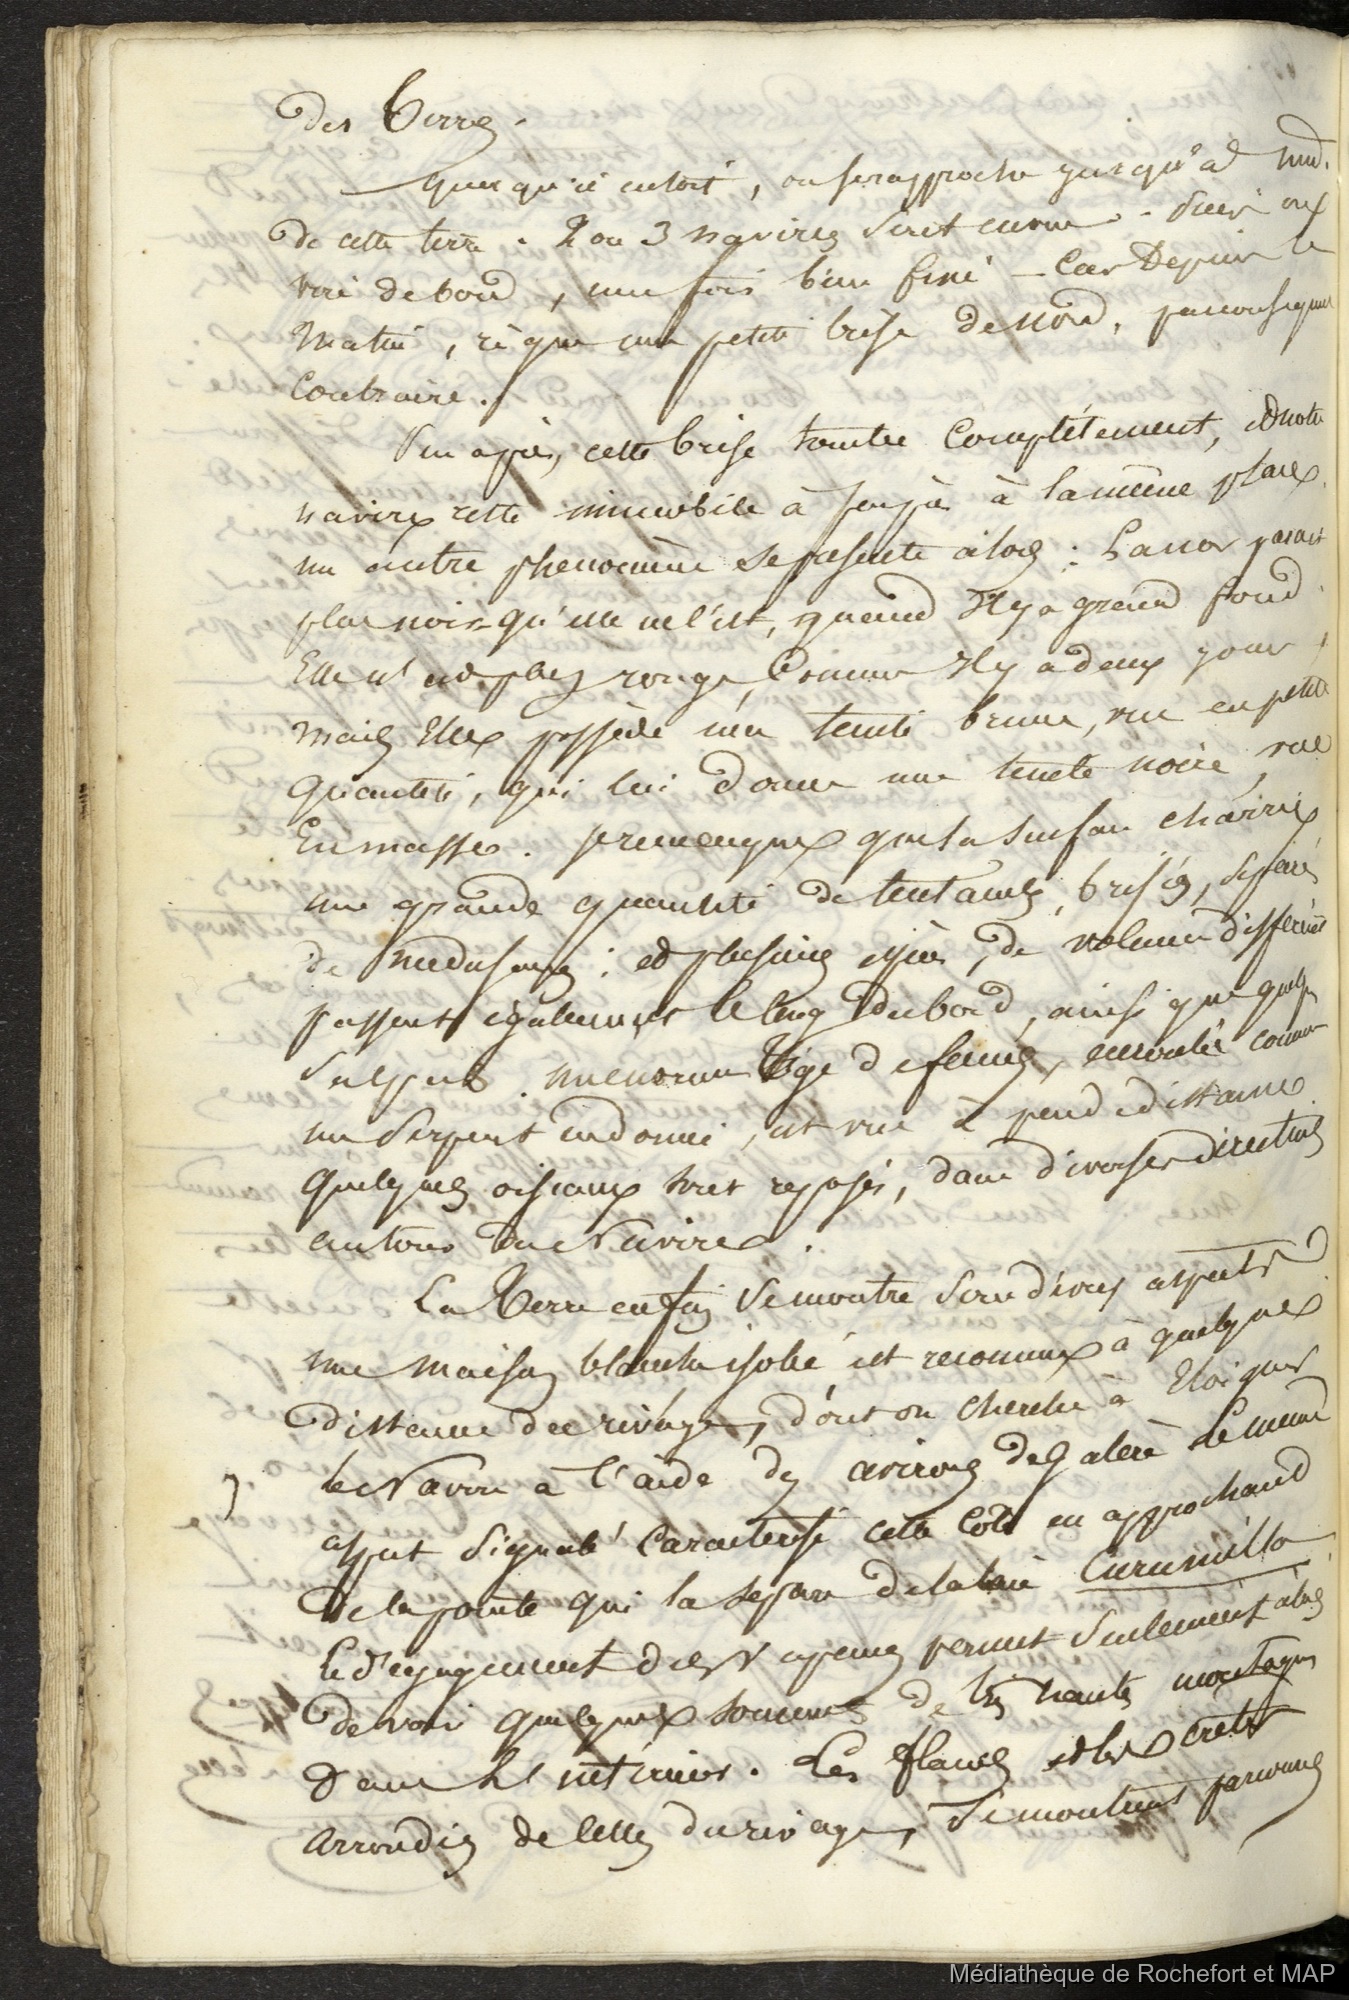 des Terres.
quoiqu'il en soit, on se rapproche jusqu'à midi
de cette terre. 2 ou 3 navires sont en vue.
viré de bord, une fois bien fixé — Car Depuis le
matin, règne une petite brise de nord, par conséquent
Contraire.
Peu après, cette brise tombe complétement, et notre
navire reste immobile à peu près à la même place
un autre phenomène se présente alors : La mer parait
plus noire qu'elle ne l'est, quand Il y a grand fond
Elle n'est plus rouge, Comme Il y a deux jours ;
mais Elle possède une teinte brune, vue en petite
quantité, qui lui donne une teinte noire, vue
En masse. je remarque que la surface charrie
une grande quantité de tentacules, brisés, séparés
de meduses ; et plusieurs espèces, de volumes différents
passent également le long du bord, ainsi que quelques
salpas. une énorme tige de fucus, enroulée comme
un serpent endormi, est vue à peu de distance
Quelques oiseaux sont reposés, dans diverses directions
autour du Navire.
La Terre enfin se montre sous divers aspects
une maison blanche isolée, est reconnue à quelque
distance du rivage, dont on cherche à Eloigner
le Navire à l'aide des avirons de galère Le même
aspect signalé caracterise cette Côte en approchant
De la pointe qui la sépare de la baie Curumilla
Le dégagement des vapeurs permet seulement alors
de voir quelques sommets de très hautes montagnes
Dans L'intérieur. Les flancs et les crêtes
arrondies de celles du rivage, se montrent parcourus